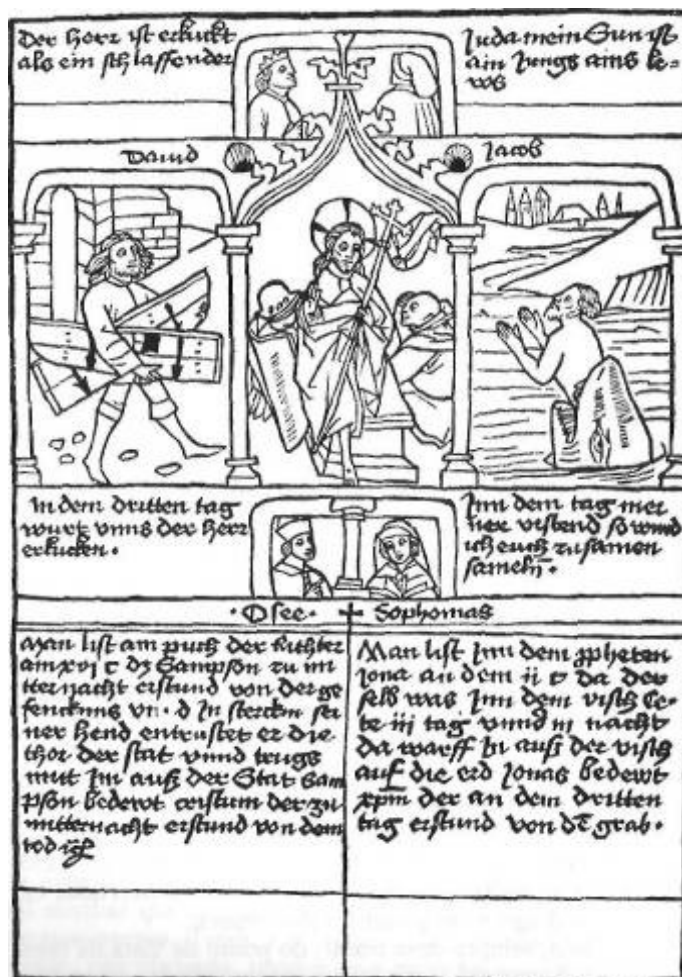 Der herr ist erkuckt
als ein schlaffender
Juda mein Sun ist
ain Jungs ains le-
ws
Dauid
Jacob
In dem dritten tag
wurt vnns der herr
erkucken.
Inn dem tag mei
ner vistend so wird
ich euch zu samen
sameln.
Osee
Sophomas
Man list am puch der Richter
am xvi c dz Sampson zu mi
tternacht erstund von der ge
fencknus vn d In sterckin sei
ner hend entrustet er die
thor der stat vnnd trugs
mitt Im auß der Stat Sam
pson bedewt cristum der zu
mitternacht erstund von dem
tod
Man list Inn dem ppheten
Jona an dem ii c da der
selb was Inn dem visch Ce
te iii tag vnnd iii nacht
da warff In auß der visch
auf die erd Jonas bedewt
xpm der an dem dritten
tag erstund von de grab.